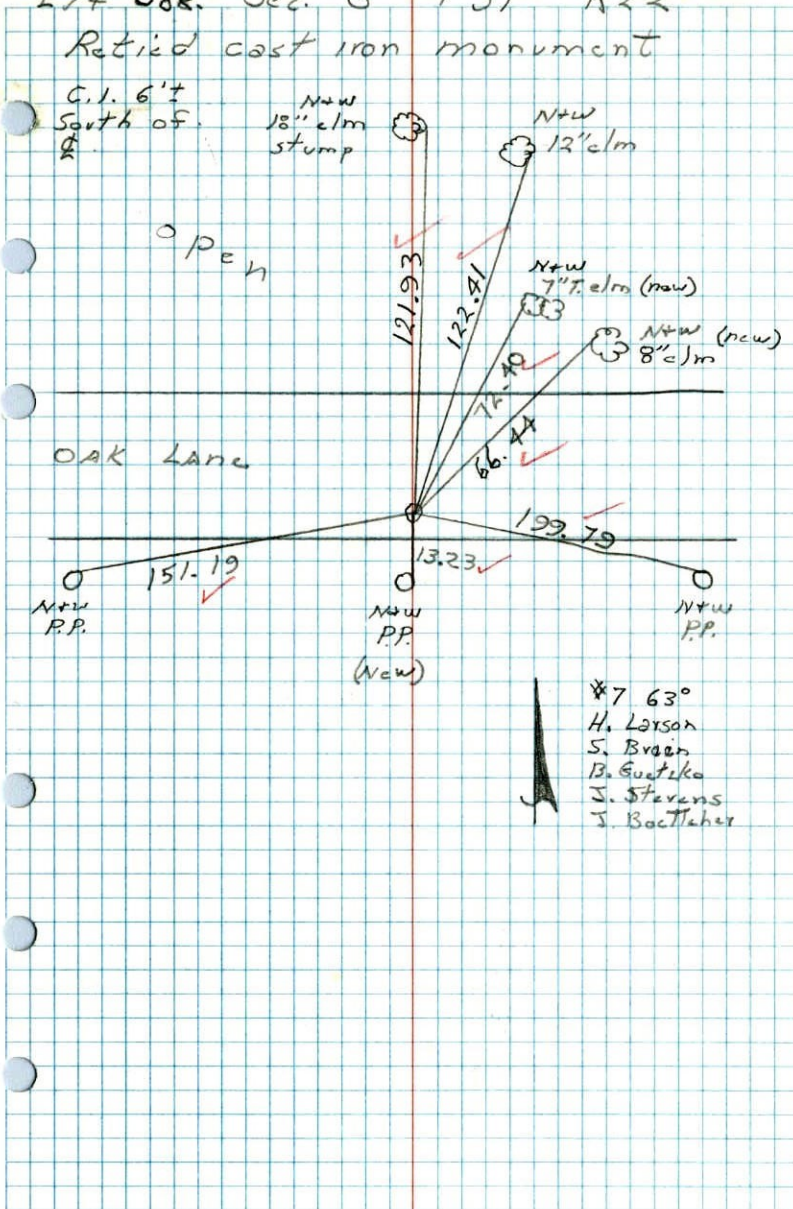 Retied cast iron monument
C.I. 6'±
South of
℄
N+W
18" elm
stump
N+W
12" elm
Open
121.93
122.41
N+W
7" T. elm (new)
N+W (new)
8" elm
72.40
66.44
OAK Lane
199.79
151.19
13.23
N+W
P.P.
N+W
P.P.
(New)
N+W
P.P.
#7 63°
H. Larson
S. Braen
B. Guetzko
J. Stevens
J. Boettcher